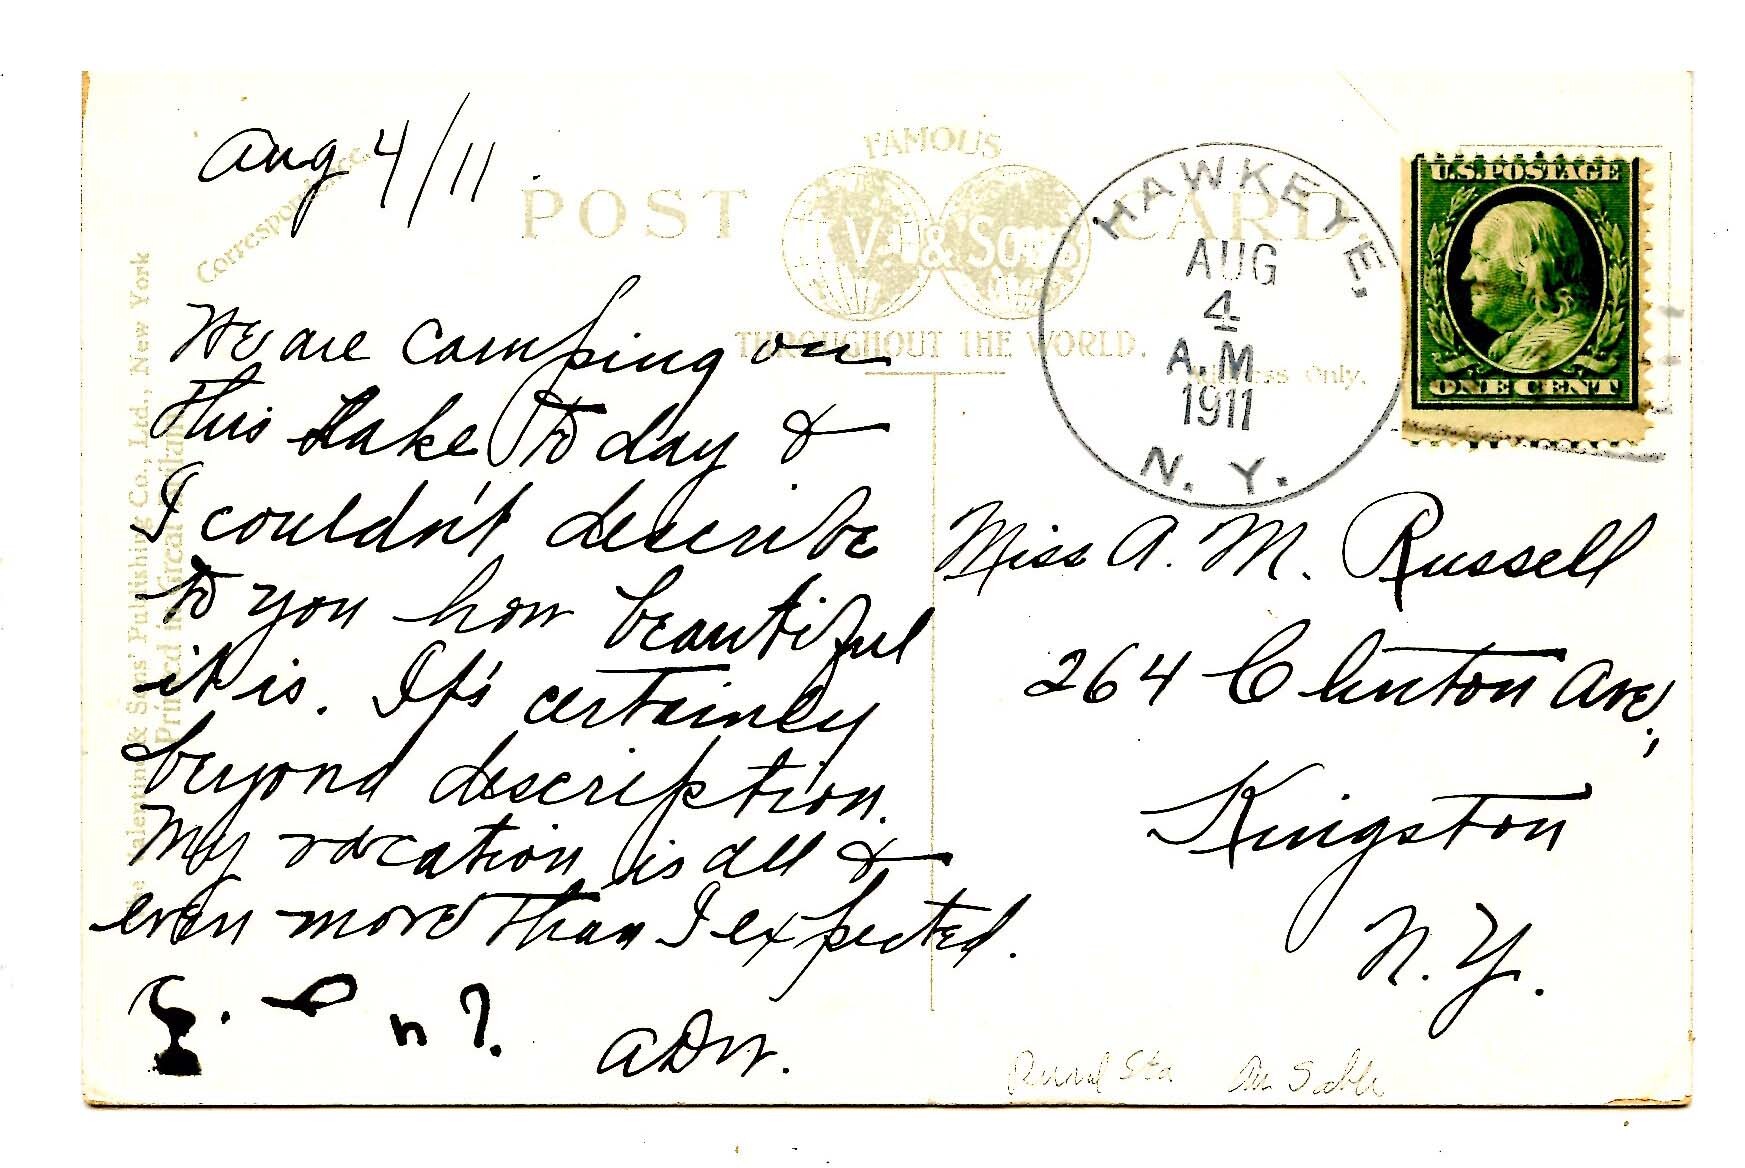 Aug 4/11.
Correspondence.
FAMOUS
POST CARD
V. & Sons
THROUGHOUT THE WORLD.
Address Only.
HAWKEYE,
AUG
4
A.M
1911
N. Y.
U.S.POSTAGE
ONE CENT
We are camping on
this Lake to day &
I couldn't describe
to you how beautiful
it is. It's certainly
beyond description.
My vacation is all &
even more than I expected.
ADW.
Miss A. M. Russell
264 Clinton Ave.,
Kingston
N. Y.
Rural Sta Au Sable
Valentine & Sons' Publishing Co., Ltd., New York
Printed in